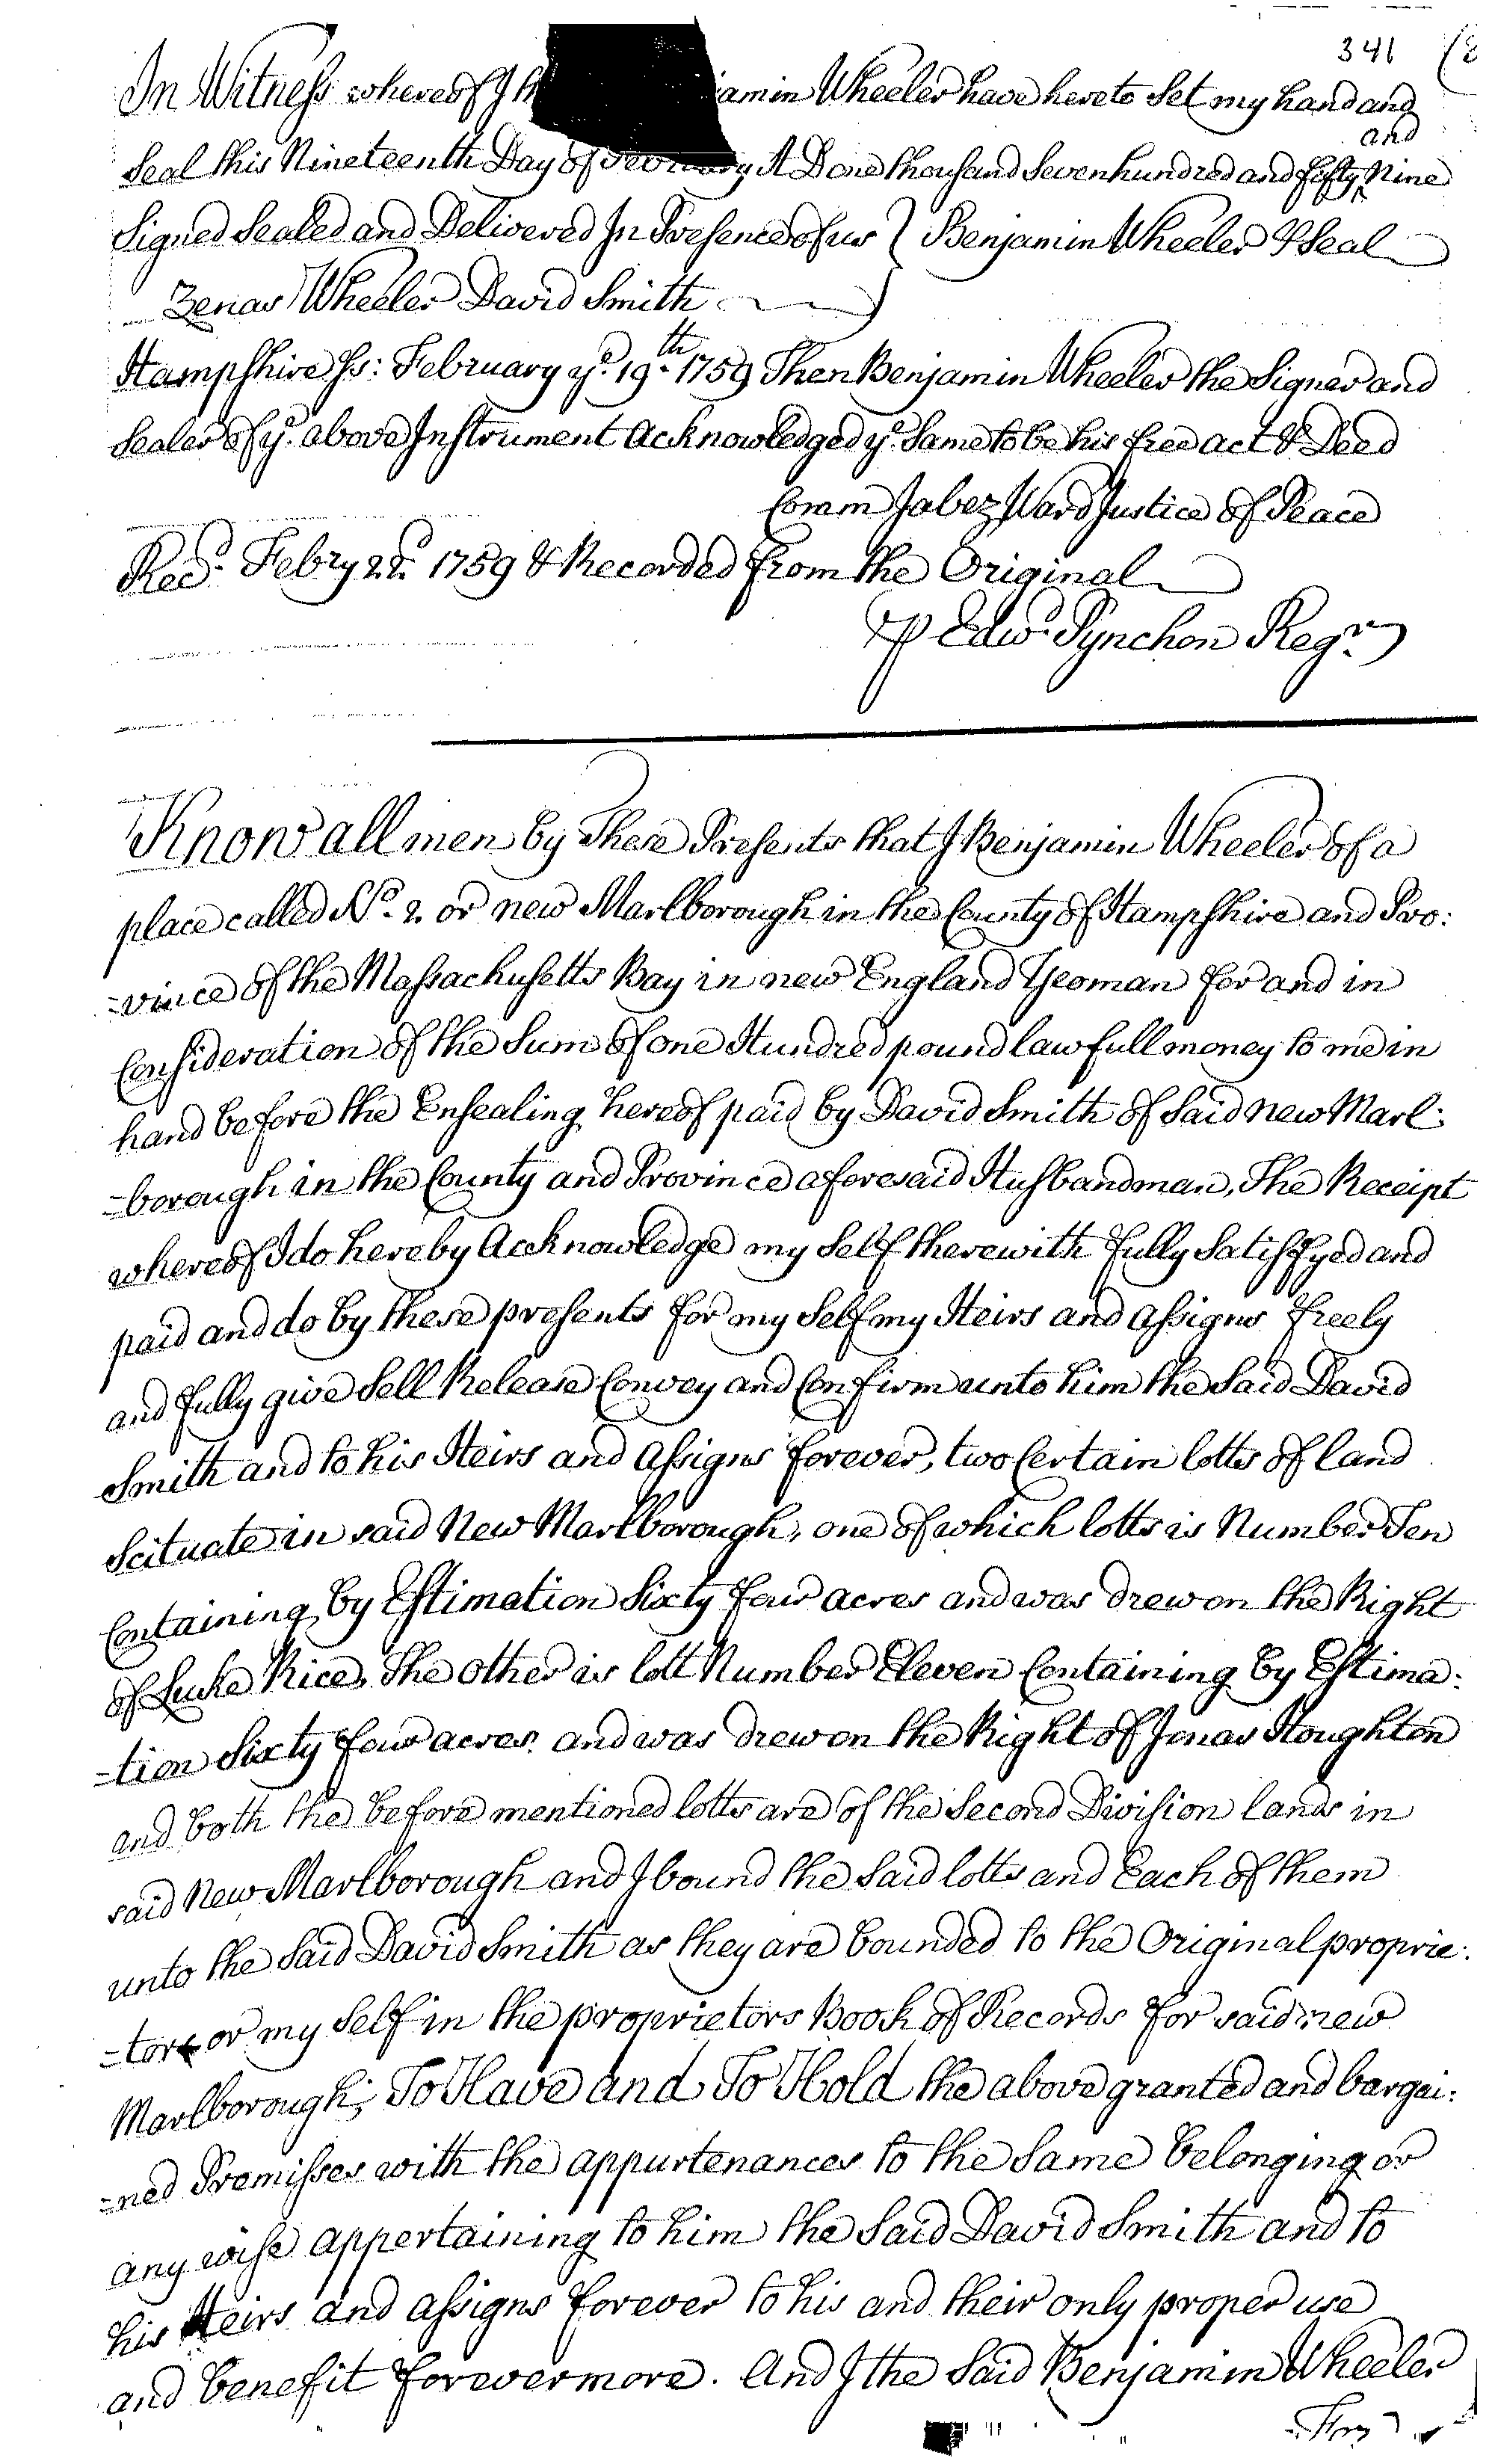 341
In Witness whereof I amin Wheeler have hereto Set my hand and
and
Seal this Nineteenth Day of A D one thousand Seven hundred and fifty Nine
Signed Sealed and Delivered In Presence of us } Benjamin Wheeler & Seal
Zenas Wheeler David Smith
Hampshire Ss: February ye. 19th. 1759 Then Benjamin Wheeler the Signer and
Sealer of ye. above Instrument Acknowledged ye. Same to be his free act & Deed
Coram Jabez Ward Justice of Peace
Recd. Febry 22d. 1759 & Recorded from the Original
⅌ Edwd. Pynchon Regr.
Know all men by These Presents that I Benjamin Wheeler of a
place called No. 2. or new Marlborough in the County of Hampshire and Pro:
=vince of the Massachusetts Bay in new England Yeoman for and in
Consideration of the Sum of one Hundred pound lawfull money to me in
hand before the Ensealing hereof paid by David Smith of Said new Marl:
=borough in the County and Province aforesaid Husbandman, The Receipt
whereof I do hereby Acknowledge my Self therewith fully Satisfyed and
paid and do by these presents for my Self my Heirs and assigns freely
and fully give Sell Release Convey and Confirm unto him the Said David
Smith and to his Heirs and assigns forever, two Certain lotts of land
Scituate in said New Marlborough, one of which lotts is Number Ten
Containing by Estimation Sixty four acres and was drew on the Right
of Luke Rice, The other is lott Number Eleven Containing by Estima:
=tion Sixty four acres. and was drew on the Right of Jonas Houghton
and both the before mentioned lotts are of the Second Division lands in
said New Marlborough and I bound the Said lotts and Each of them
unto the Said David Smith as they are bounded to the Original proprie:
=tors or my Self in the proprietors Book of Records for said new
Marlborough; To Have and To Hold the above granted and bargai:
=ned Premisses with the appurtenances to the Same belonging or
any wise appertaining to him the Said David Smith and to
his Heirs and assigns forever to his and their only proper use
and benefit forevermore. And I the Said Benjamin Wheeler